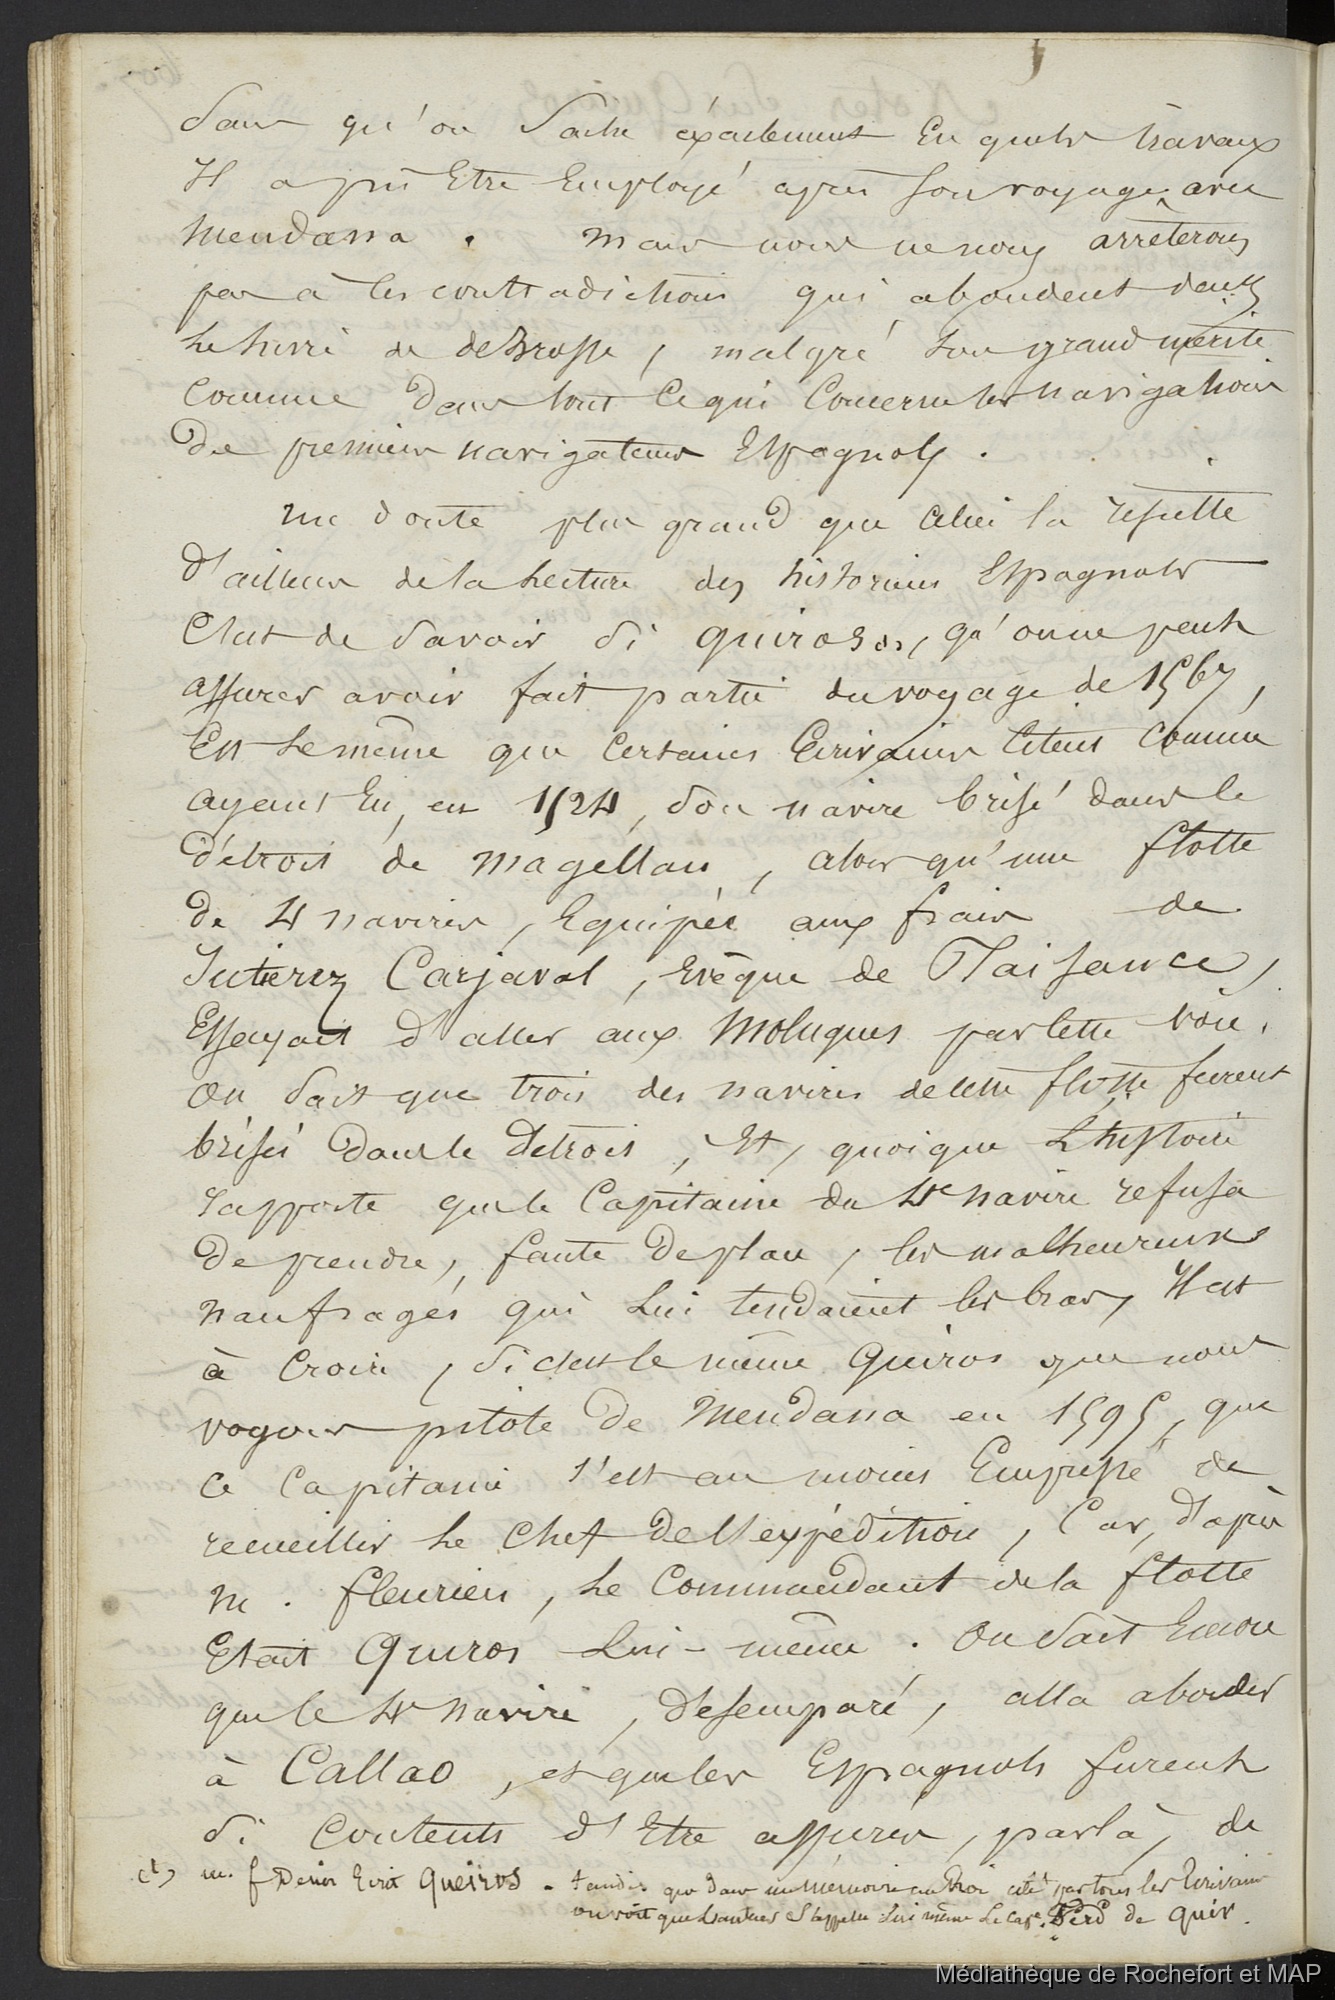 Sans qu'on Sache éxactement En quels travaux
Il a pû Etre Employé après son voyage avec
Mendana. Mais nous ne nous arrêterons
pas à les contradictions qui abondent dans
Le Livre de deBrosse, malgré son grand mérite
Comme dans tout Ce qui Concerne les navigations
De premiers navigateurs Espagnols.
un doute plus grand que Celui la resulte
D'ailleurs de la Lecture des historiens Espagnols
C'est de Savoir Si quiros (1), qu'on ne peut
assurer avoir fait partie du voyage de 1567,
Est Le même que Certains Ecrivains Citent Comme
ayant Eu, en 1524, Son navire brisé dans le
Détroit de Magellan, alors qu'une flotte
De 4 navires, Equipée aux frais de
Jutierez Carjaval, Evêque de Plaisance,
Essayait D'aller aux Moluques par Cette voie.
On Sait que trois des navires de Cette flotte furent
brisés Dans le Détroit, Et, quoique L'histoire
rapporte que le Capitaine du 4e navire refusa
De prendre, faute De place, les malheureux
naufragés qui Lui tendaient les bras, Il est
à Croire, Si c'est le même Quiros que nous
voyons pilote De Mendana en 1595, que
Ce Capitaine S'est au moins Empressé de
recueillir Le Chef De L'expédition, Car, D'après
M. fleurieu, Le Commandant de la flotte
Etait Quiros Lui-même. On Sait Encore
que le 4e navire, Désemparé, alla aborder
à Callao, et que les Espagnols furent
Si Contents D'Etre assurés, par là, de
(1) M. f Denis Ecrit Queiros. tandis que dans un mémoire au Roi cité par tous les Ecrivains
on voit que L'auteur S'appelle Lui même Le Cape. Ferd de Quir.
Médiathèque de Rochefort et MAP